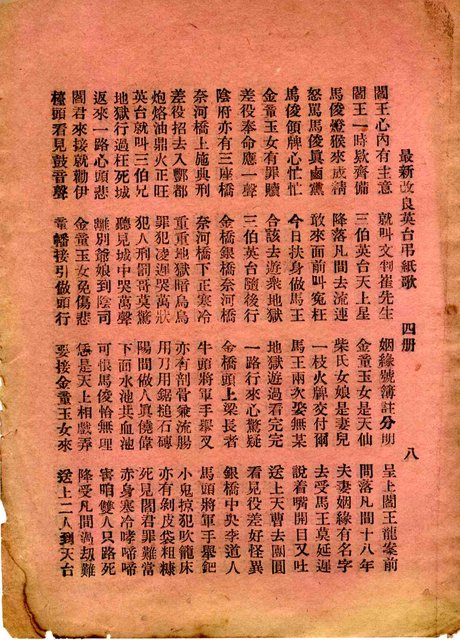 最新改良英台弔紙歌　四册　八
閻王心內有主意　就叫文判崔先生　姻緣號簿註分明　呈上閻王龍案前
閻王一時欵齊備　三伯英台天上星　金童玉女是天仙　間落凡間十八年
馬俊燈猴來成精　降落凡間去流連　柴氏女娘是妻兒　夫妻姻緣有名字
怒罵馬俊眞鹵黨　敢來面前叫寃枉　一枝火牌交付爾　去受馬王莫延遲
馬俊領牌心忙忙　今日扶身做馬王　馬王兩次娶無某　說着嘴開日又吐
金童玉女有罪贖　合該去遊衆地獄　地獄遊過看完完　送上天曹去團圓
差役奉命應一聲　三伯英台隨後行　一路行來心驚疑　看見役差好怪異
陰府亦有三座橋　金橋銀橋奈河橋　金橋頭上梁長者　銀橋中央李道人
奈河橋上施典刑　奈河橋下正寒冷　牛頭將軍手舉叉　馬頭將軍手舉鈀
差役招去入酆都　重重地獄暗烏烏　亦有剖骨兼流腸　小鬼掠犯吹籠床
炮烙油鼎火正旺　罪犯凌遲哭萬狀　用刀用鋸搥石磚　亦有剝皮袋粗糠
英台就叫三伯兄　犯人刑罰哥莫驚　陽間做人眞僥偉　死見閻君罪難當
地獄行過枉死城　聽見城中哭萬聲　下面水池共血池　赤身寒冷哮啼啼
返來一路心頭悲　離別爺娘到陰司　可恨馬俊恰無理　害咱雙人只路死
閻君來接就勸伊　金童玉女免傷悲　恁是天上相戲弄　降受凡間過劫難
檯頭看見鼓音聲　童幡接引做頭行　要接金童玉女來　送上二人到天台